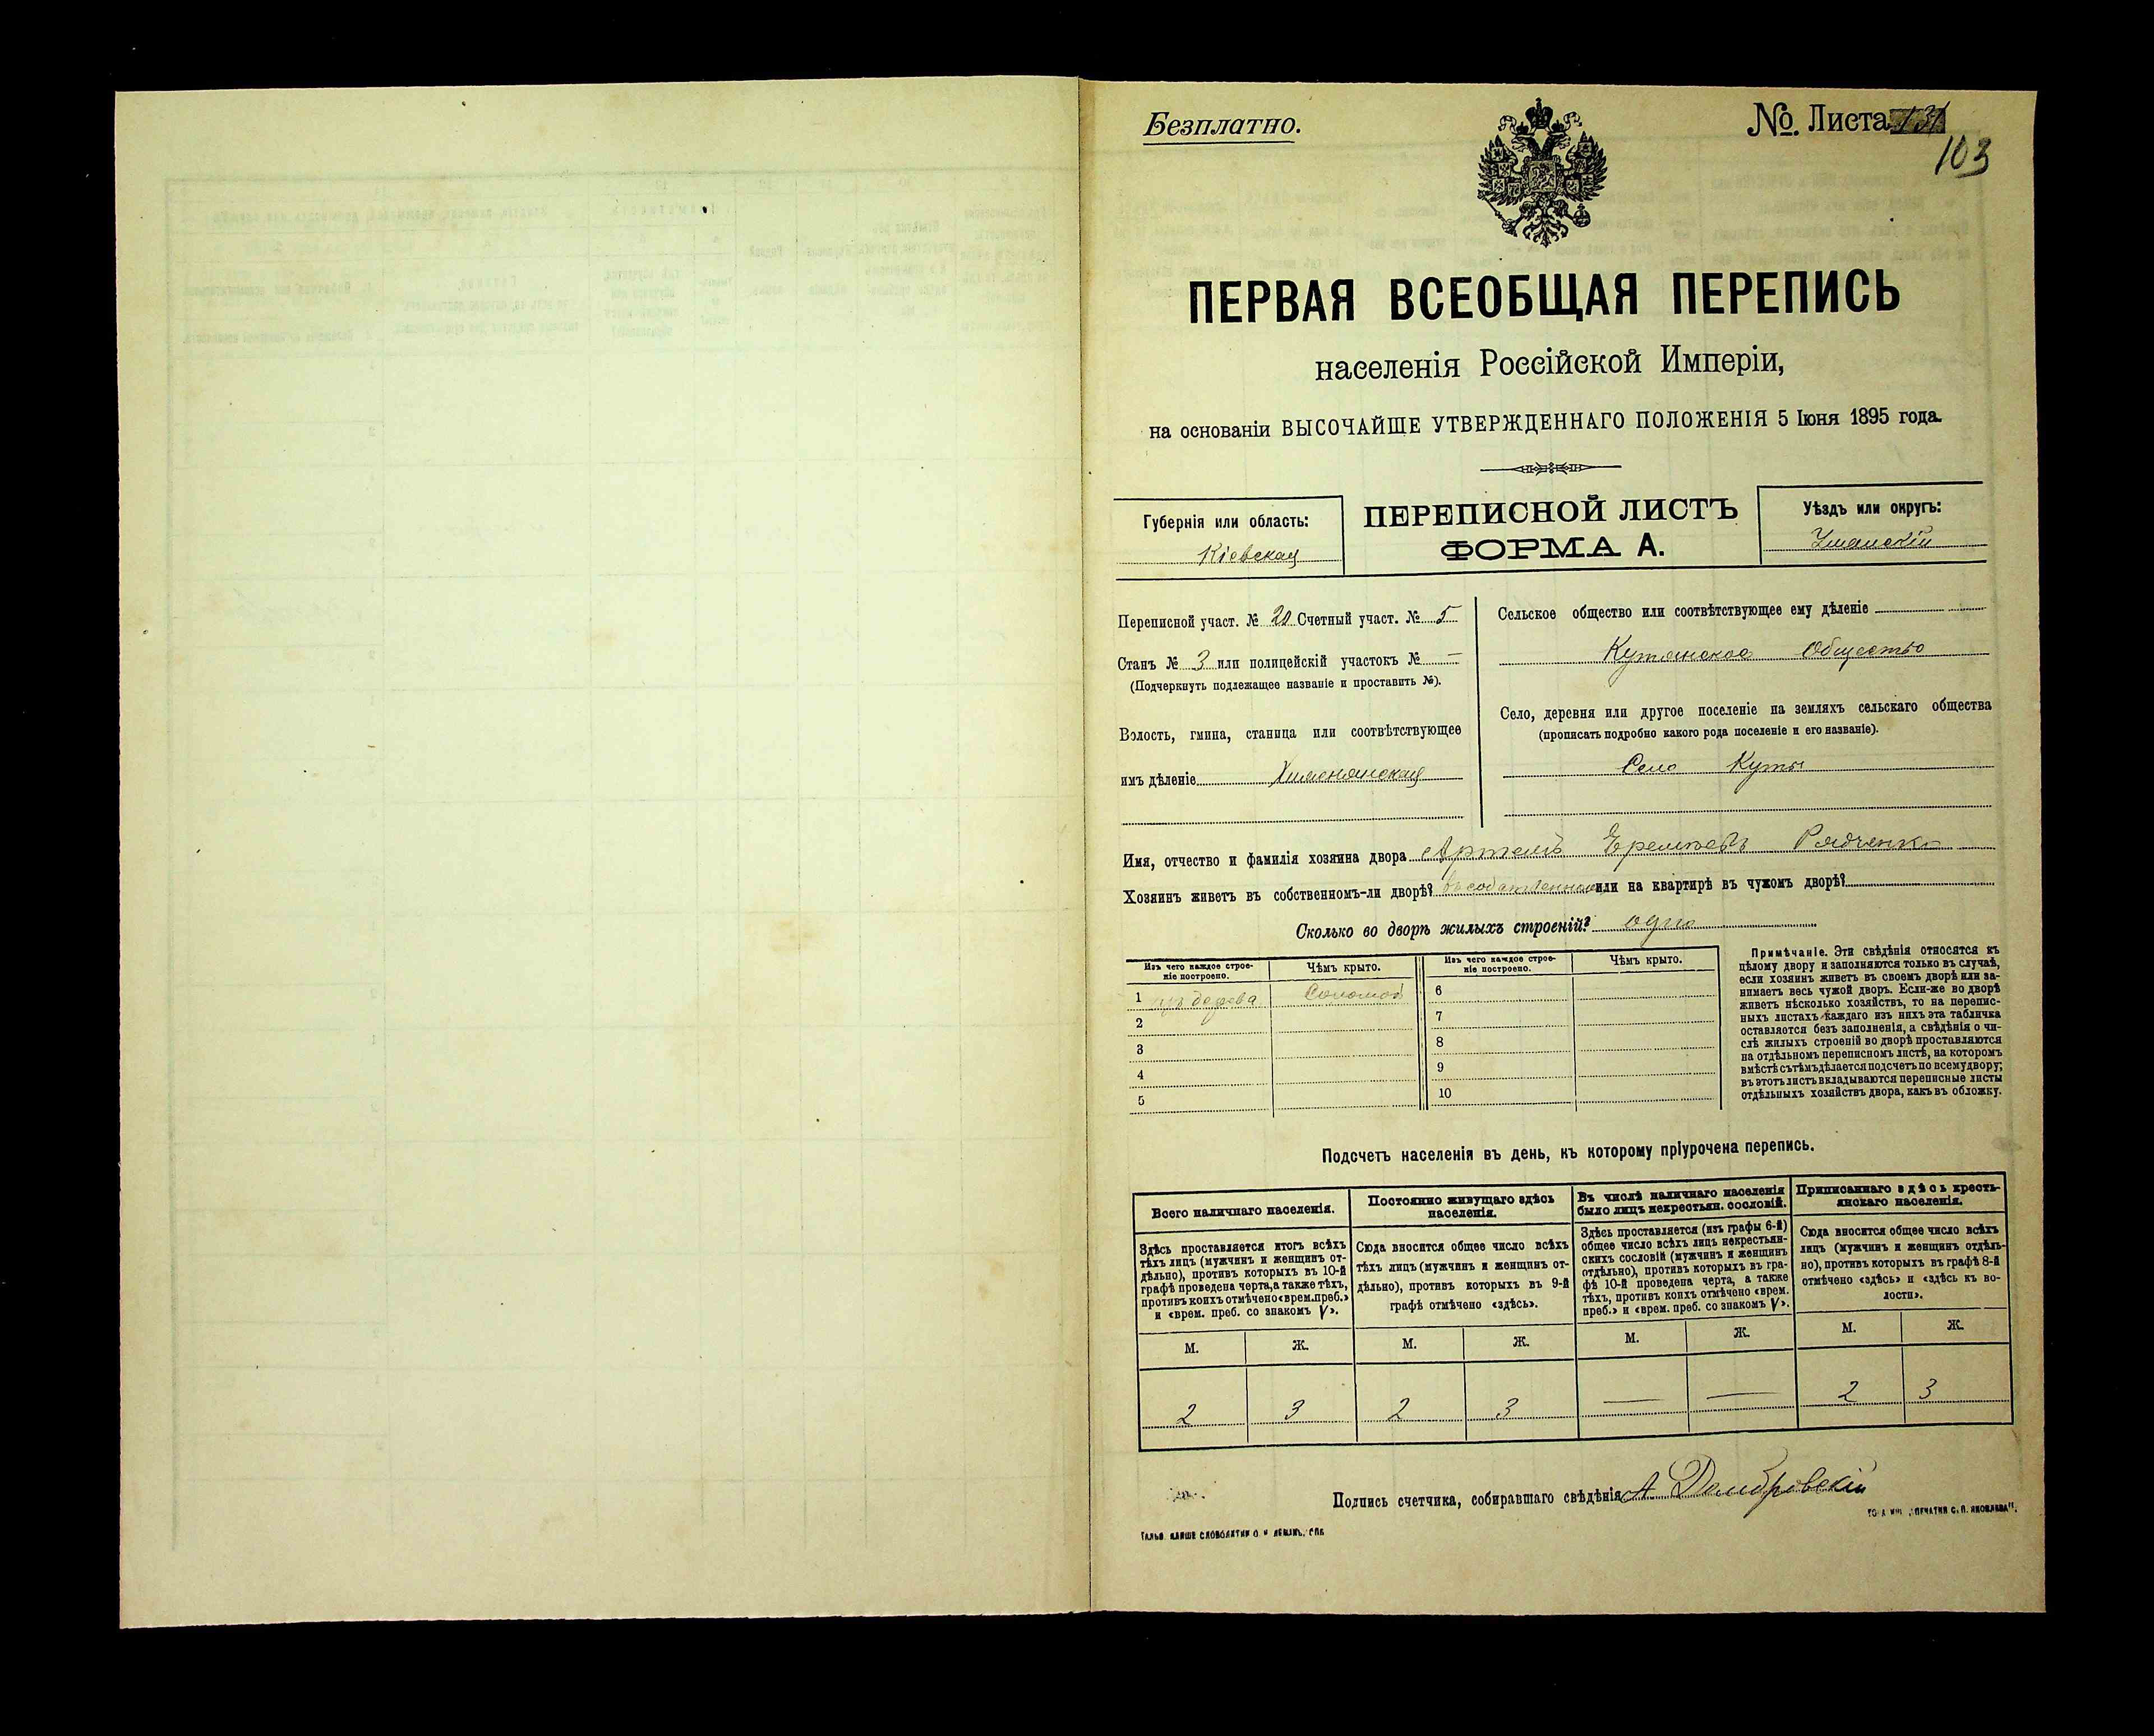 Безплатно.
№. Листа 131
103
ПЕРВАЯ ВСЕОБЩАЯ ПЕРЕПИСЬ
населенія Россійской Имперіи,
на основаніи ВЫСОЧАЙШЕ УТВЕРЖДЕННАГО ПОЛОЖЕНІЯ 5 Іюня 1895 года.
Губернія или область:
Кіевская
ПЕРЕПИСНОЙ ЛИСТЪ
ФОРМА А.
Уѣздъ или округъ:
Уманскій
Переписной участ. № 20 Счетный участ. № 5
Станъ № 3 или полицейскій участокъ № —
(Подчеркнуть подлежащее названіе и проставить №).
Волость, гмина, станица или соотвѣтствующее
имъ дѣленіе
Сельское общество или соотвѣтствующее ему дѣленіе
Кутянское Общество
Село, деревня или другое поселеніе на земляхъ сельскаго общества
(прописать подробно какого рода поселеніе и его названіе).
Село Куты
Имя, отчество и фамилія хозяина двора Артемъ Еремѣевъ Рядченко
Хозяинъ живетъ въ собственномъ-ли дворѣ? въ собственном или на квартирѣ въ чужомъ дворѣ?
Сколько во дворѣ жилыхъ строеній? одно
Изъ чего каждое строе-
ніе построено.
Чѣмъ крыто.
Изъ чего каждое строе-
ніе построено.
Чѣмъ крыто.
1 изъ дерева Соломой 6
2 7
3 8
4 9
5 10
Примѣчаніе. Эти свѣдѣнія относятся къ
цѣлому двору и заполняются только въ случаѣ,
если хозяинъ живетъ въ своемъ дворѣ или за-
нимаетъ весь чужой дворъ. Если-же во дворѣ
живетъ нѣсколько хозяйствъ, то на перепис-
ныхъ листахъ каждаго изъ нихъ эта табличка
оставляется безъ заполненія, а свѣдѣнія о чи-
слѣ жилыхъ строеній во дворѣ проставляются
на отдѣльномъ переписномъ листѣ, на которомъ
вмѣстѣ съ тѣмъ дѣлается подсчетъ по всему двору;
въ этотъ листъ вкладываются переписные листы
отдѣльныхъ хозяйствъ двора, какъ въ обложку.
Подсчетъ населенія въ день, къ которому пріурочена перепись.
Всего наличнаго населенія.
Здѣсь проставляется итогъ всѣхъ
тѣхъ лицъ (мужчинъ и женщинъ от-
дѣльно), противъ которыхъ въ 10-й
графѣ проведена черта, а также тѣхъ,
противъ коихъ отмѣчено «врем. преб.»
и «врем. преб. со знакомъ V».
Постоянно живущаго здѣсь
населенія.
Сюда вносится общее число всѣхъ
тѣхъ лицъ (мужчинъ и женщинъ от-
дѣльно), противъ которыхъ въ 9-й
графѣ отмѣчено «здѣсь».
Въ числѣ наличнаго населенія
было лицъ некрестьян. сословій.
Здѣсь проставляется (изъ графы 6-й)
общее число всѣхъ лицъ некрестьян-
скихъ сословій (мужчинъ и женщинъ
отдѣльно), противъ которыхъ въ гра-
фѣ 10-й проведена черта, а также
тѣхъ, противъ коихъ отмѣчено «врем.
преб.» и «врем. преб. со знакомъ V».
Приписаннаго здѣсь кресть-
янскаго населенія.
Сюда вносится общее число всѣхъ
лицъ (мужчинъ и женщинъ отдѣль-
но), противъ которыхъ въ графѣ 8-й
отмѣчено «здѣсь» и «здѣсь къ во-
лости».
М. Ж. М. Ж. М. Ж. М. Ж.
2 3 2 3 — — 2 3
Подпись счетчика, собиравшаго свѣдѣнія А Домбровскій